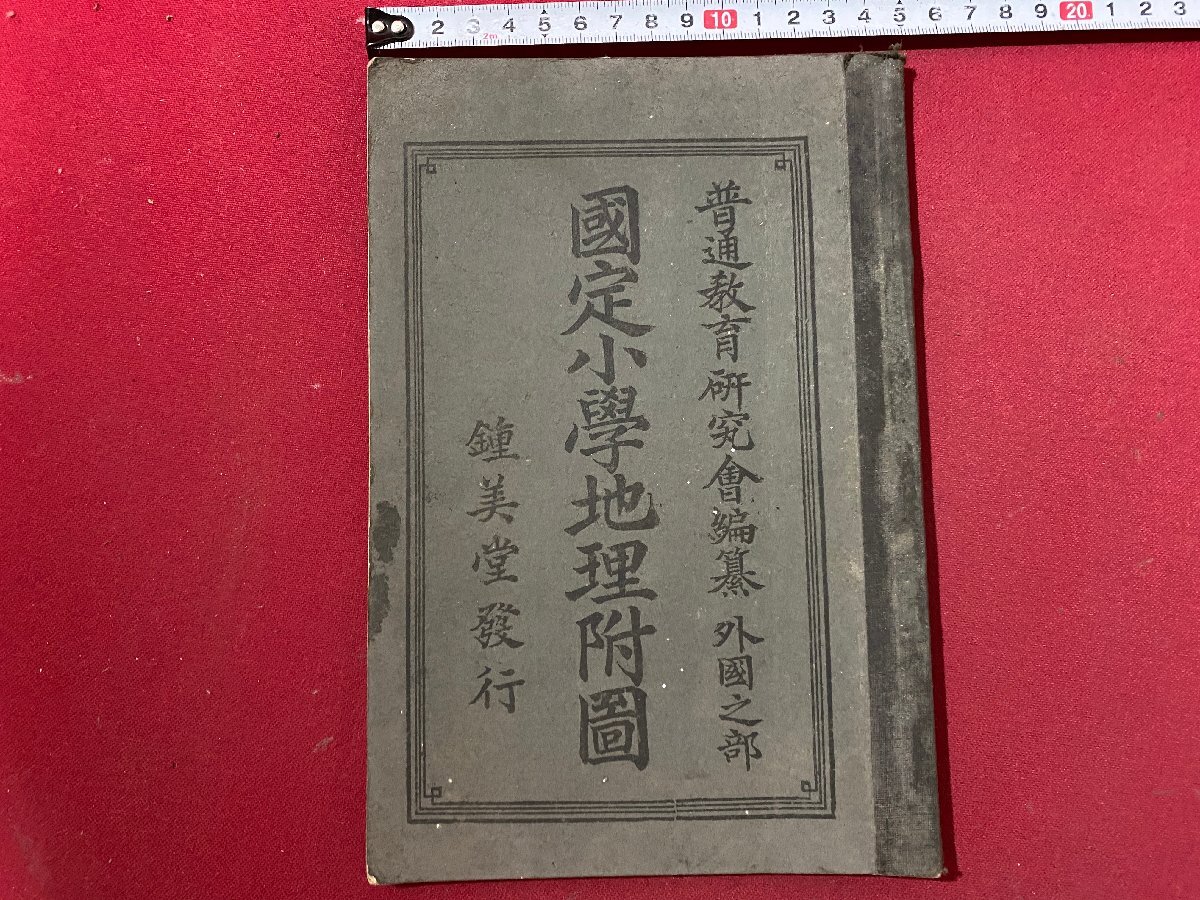 2 3 4 5 6 7 8 9 10 1 2 3 4 5 6 7 8 9 20 1 2 3
2m
普通教育研究會編纂 外國之部
國定小學地理附圖
鍾美堂發行